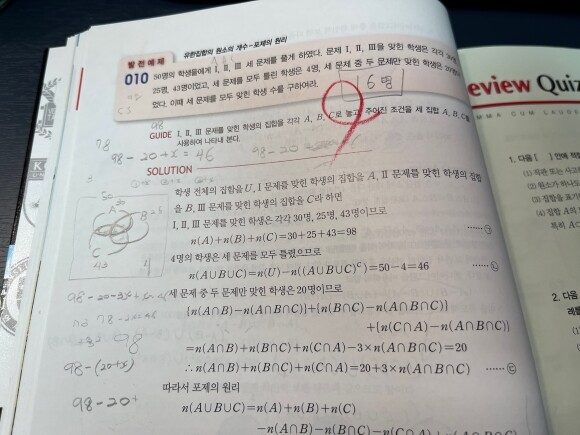 유한집합의 원소의 개수-포제의 원리
발전예제
010 50명의 학생들에게 I, II, III 세 문제를 풀게 하였다. 문제 I, II, III을 맞힌 학생은 각각 30명,
25명, 43명이었고, 세 문제를 모두 틀린 학생은 4명, 세 문제 중 두 문제만 맞힌 학생은 20명이
었다. 이때 세 문제를 모두 맞힌 학생 수를 구하여라.
16명
98
GUIDE I, II, III 문제를 맞힌 학생의 집합을 각각 A, B, C로 놓고, 주어진 조건을 세 집합 A, B, C를
사용하여 나타내 본다.
78
98-20+x=46
SOLUTION
학생 전체의 집합을 U, I 문제를 맞힌 학생의 집합을 A, II 문제를 맞힌 학생의 집합
을 B, III 문제를 맞힌 학생의 집합을 C라 하면
I, II, III 문제를 맞힌 학생은 각각 30명, 25명, 43명이므로
n(A)+n(B)+n(C)=30+25+43=98 ⋯⋯ ㉠
4명의 학생은 세 문제를 모두 틀렸으므로
n(A∪B∪C)=n(U)-n((A∪B∪C)ᶜ)=50-4=46 ⋯⋯ ㉡
세 문제 중 두 문제만 맞힌 학생은 20명이므로
{n(A∩B)-n(A∩B∩C)}+{n(B∩C)-n(A∩B∩C)}
+{n(C∩A)-n(A∩B∩C)}
=n(A∩B)+n(B∩C)+n(C∩A)-3×n(A∩B∩C)=20
∴ n(A∩B)+n(B∩C)+n(C∩A)=20+3×n(A∩B∩C) ⋯⋯ ㉢
따라서 포제의 원리
n(A∪B∪C)=n(A)+n(B)+n(C)
-n(A∩B)-n(B∩C)-n(C∩A)+n(A∩B∩C)
43
4
98
98-(20+x)
98-20+
eview Quiz
MMA CUM LAUDE
1. 다음 [ ] 안에 적
(1) 객관적 또는 사고
(2) 원소가 하나
(3) 집합을 표기
(4) 집합 A의
특히 A⊂
2. 다음
레를
(1)